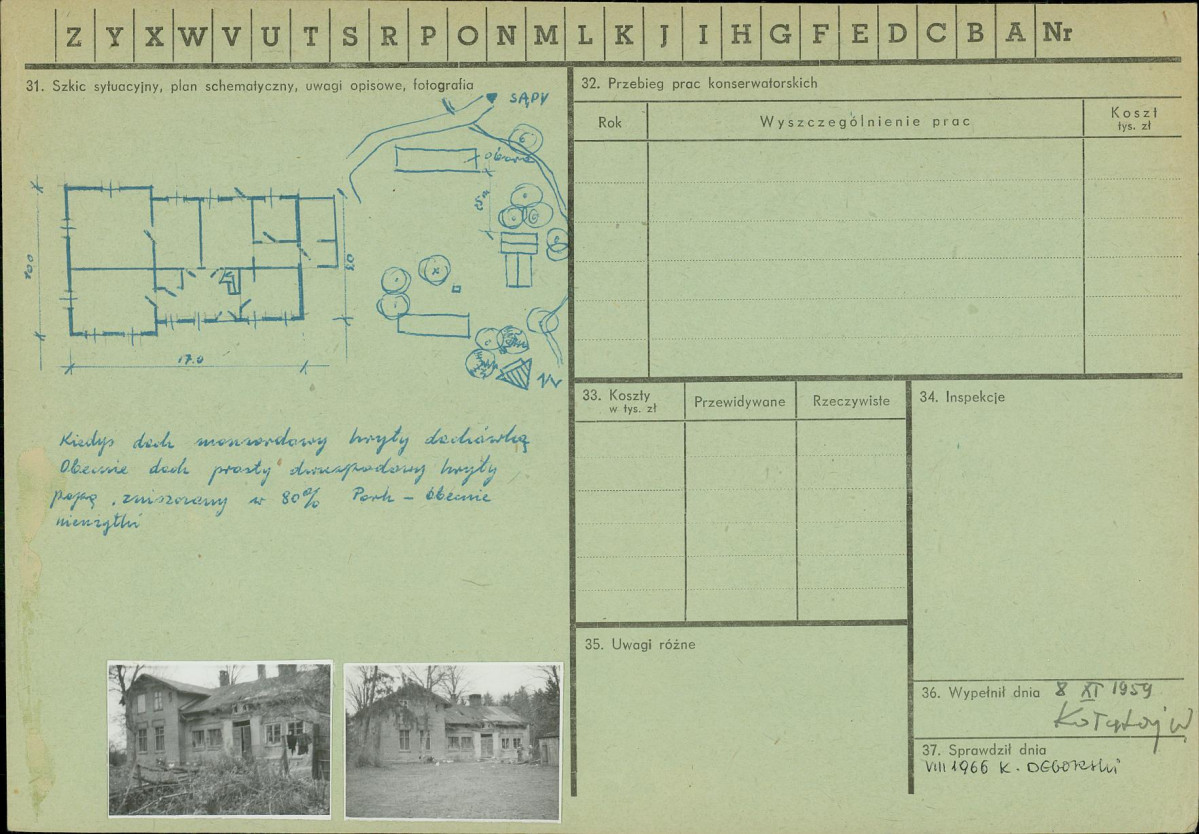 Z Y X W V U T S R P O N M L K J I H G F E D C B A Nr
31. Szkic sytuacyjny, plan schematyczny, uwagi opisowe, fotografia
SĄPY
obora
10.0
17.0
Kiedyś dach manzardowy kryty dachówką
Obecnie dach prosty dwuspadowy kryty
papą, zniszczony w 80% Park – obecnie
nieużytki
32. Przebieg prac konserwatorskich
Rok
Wyszczególnienie prac
Koszt
tys. zł
33. Koszty
w tys. zł
Przewidywane
Rzeczywiste
34. Inspekcje
35. Uwagi różne
36. Wypełnił dnia 8 XI 1959
37. Sprawdził dnia
VIII 1966 K.